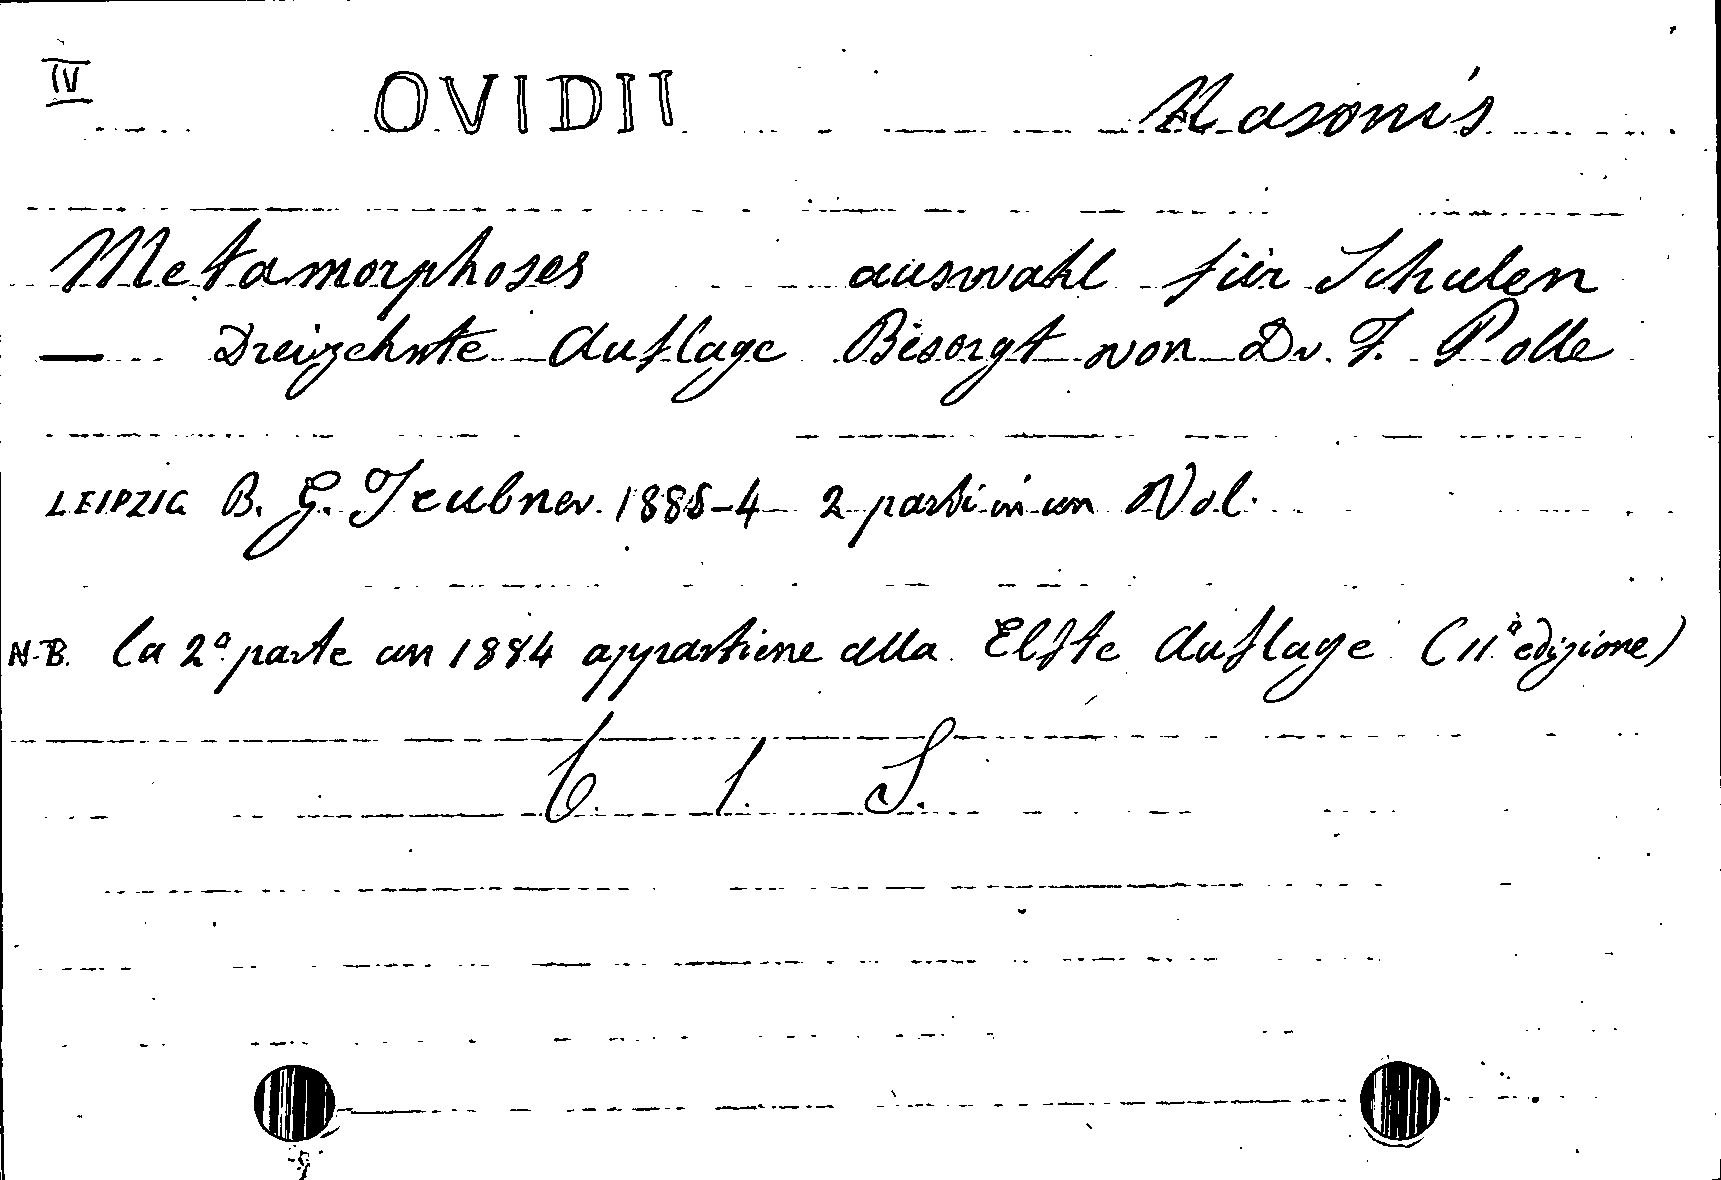 IV OVIDII Nasonis
Metamorphoses auswahl für Schulen
— Dreizehnte Auflage Besorgt von Dr. F. Polle
LEIPZIG B. G. Teubner. 1888-4 2 parti in un Vol.
N.B. la 2ª parte an 1884 appartiene alla Elfte Auflage (11ª edizione)